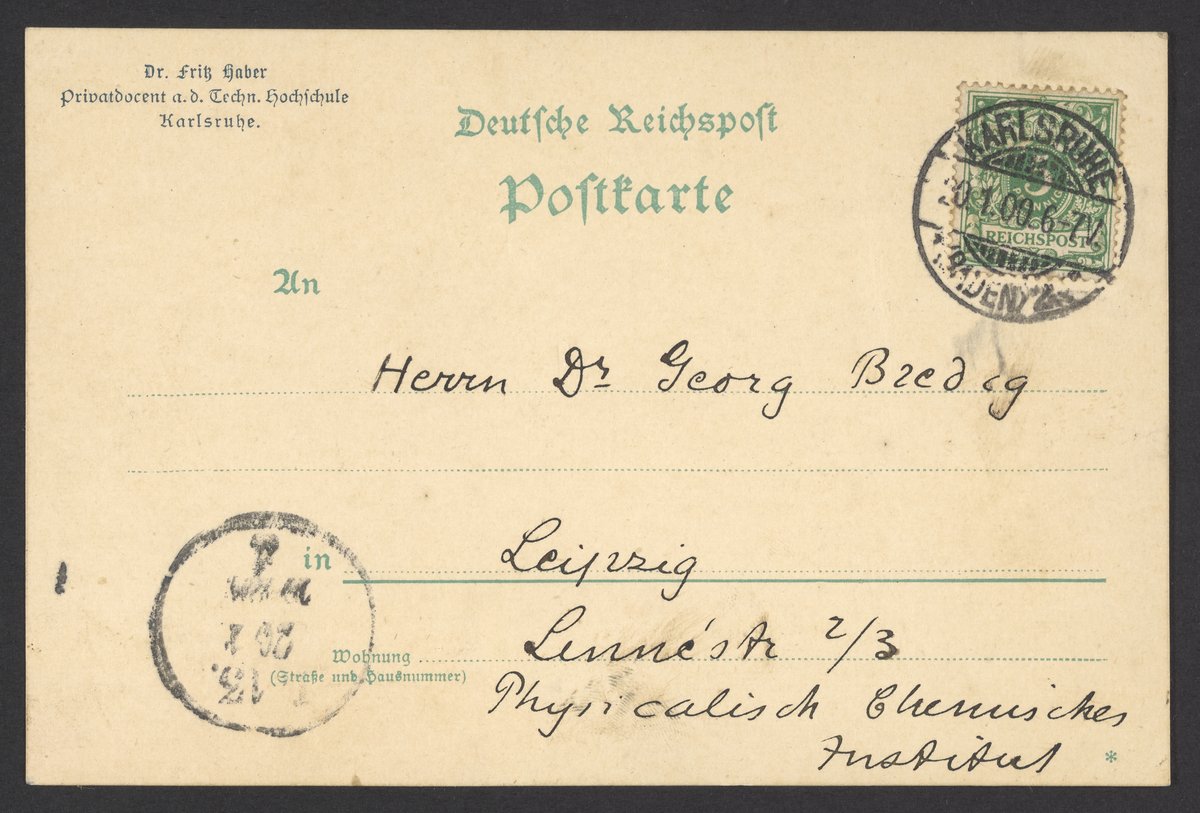 Dr. Fritz Haber
Privatdocent a. d. Techn. Hochschule
Karlsruhe.
Deutsche Reichspost
Postkarte
KARLSRUHE
20.1.00.6-7V.
(BADEN) 2
5
REICHSPOST
An
Herrn Dr Georg Bredig
in Leipzig
Wohnung Lennéstr 2/3
(Straße und Hausnummer)
Physicalisch Chemisches
Institut *